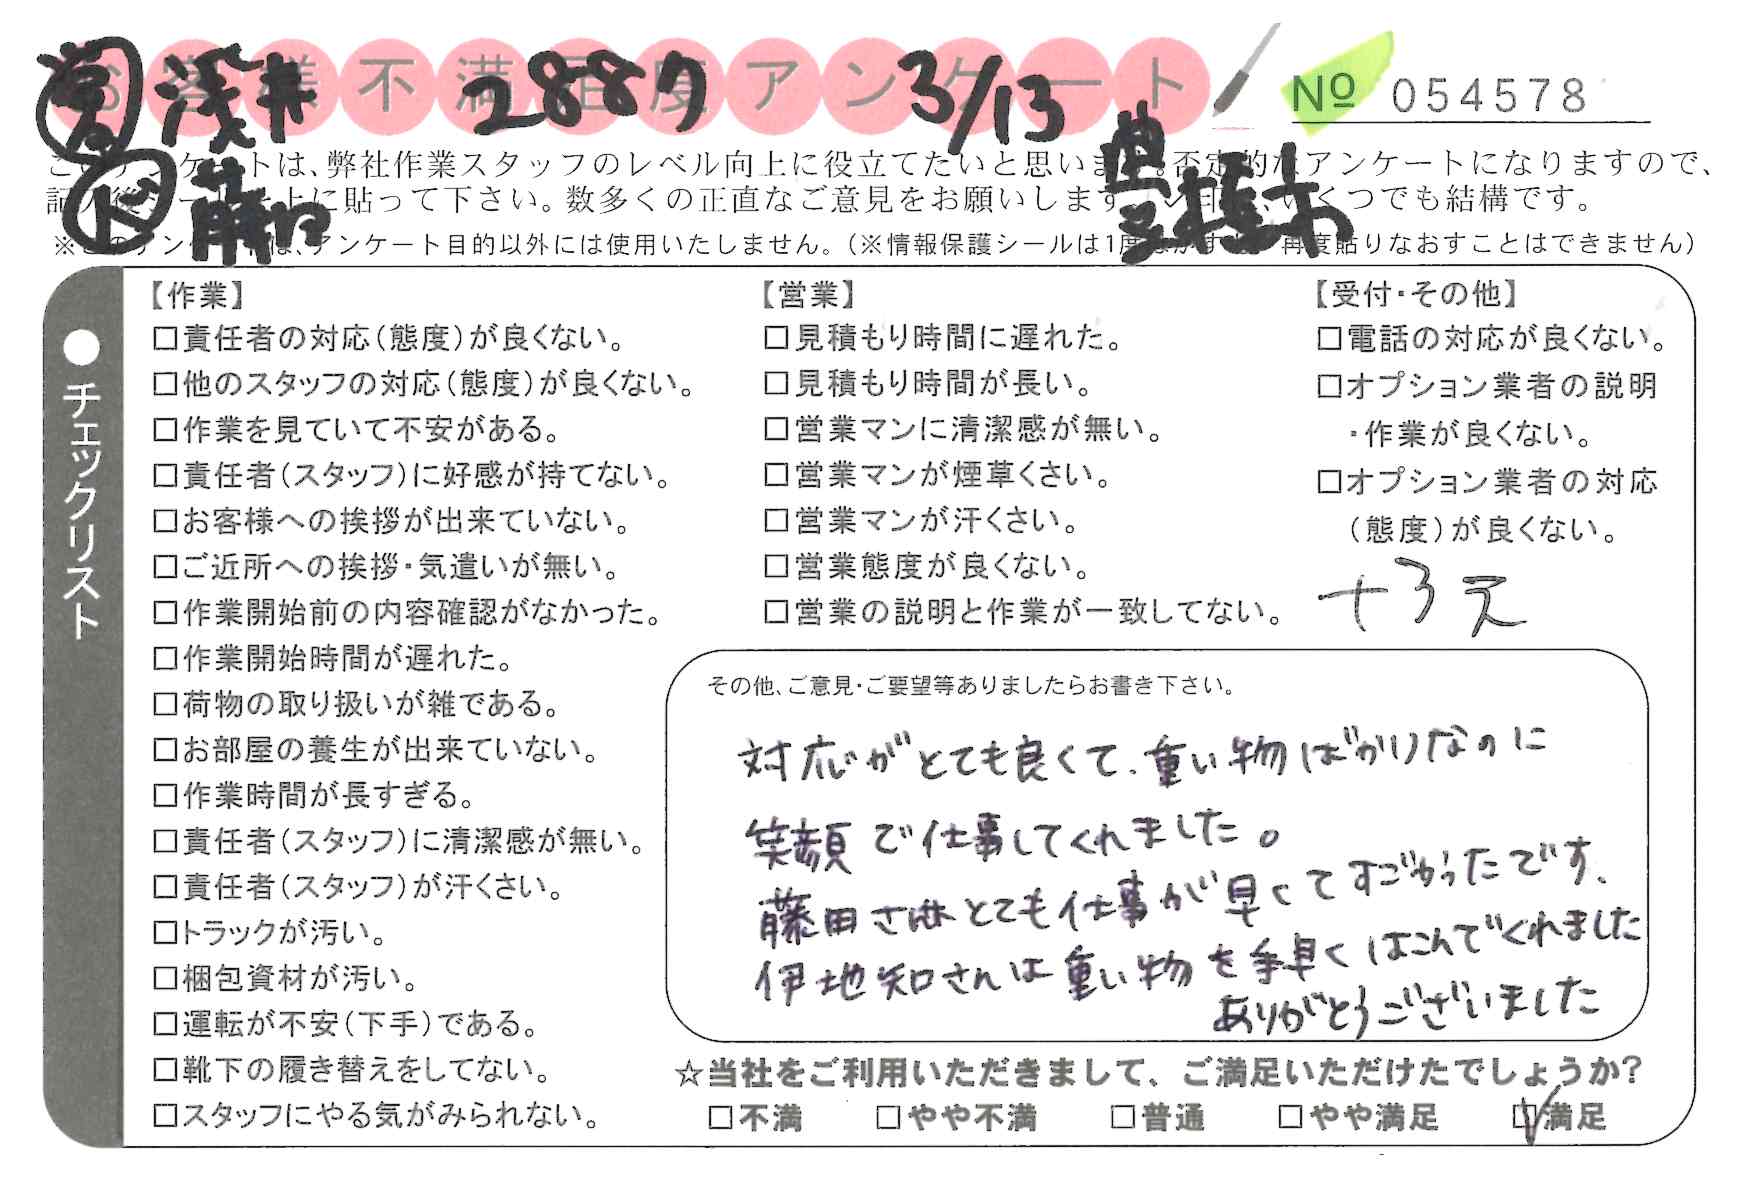 お客様不満足度アンケート
Nº 054578
営 浅井 2887 3/13
ド 藤田
このアンケートは、弊社作業スタッフのレベル向上に役立てたいと思います。否定的なアンケートになりますので、
記入後シールを上に貼って下さい。数多くの正直なご意見をお願いします。
いくつでも結構です。
※このアンケートは、アンケート目的以外には使用いたしません。（※情報保護シールは1度はがすと、再度貼りなおすことはできません）
●チェックリスト
【作業】
□責任者の対応（態度）が良くない。
□他のスタッフの対応（態度）が良くない。
□作業を見ていて不安がある。
□責任者（スタッフ）に好感が持てない。
□お客様への挨拶が出来ていない。
□ご近所への挨拶・気遣いが無い。
□作業開始前の内容確認がなかった。
□作業開始時間が遅れた。
□荷物の取り扱いが雑である。
□お部屋の養生が出来ていない。
□作業時間が長すぎる。
□責任者（スタッフ）に清潔感が無い。
□責任者（スタッフ）が汗くさい。
□トラックが汚い。
□梱包資材が汚い。
□運転が不安（下手）である。
□靴下の履き替えをしてない。
□スタッフにやる気がみられない。
【営業】
□見積もり時間に遅れた。
□見積もり時間が長い。
□営業マンに清潔感が無い。
□営業マンが煙草くさい。
□営業マンが汗くさい。
□営業態度が良くない。
□営業の説明と作業が一致してない。
【受付・その他】
□電話の対応が良くない。
□オプション業者の説明
・作業が良くない。
□オプション業者の対応
（態度）が良くない。
+3
その他、ご意見・ご要望等ありましたらお書き下さい。
対応がとても良くて、重い物ばかりなのに
笑顔で仕事してくれました。
藤田さんはとても仕事が早くてすごかったです、
伊地知さんは重い物を手早くはこんでくれました
ありがとうございました
☆当社をご利用いただきまして、ご満足いただけたでしょうか?
□不満 □やや不満 □普通 □やや満足 ☑満足